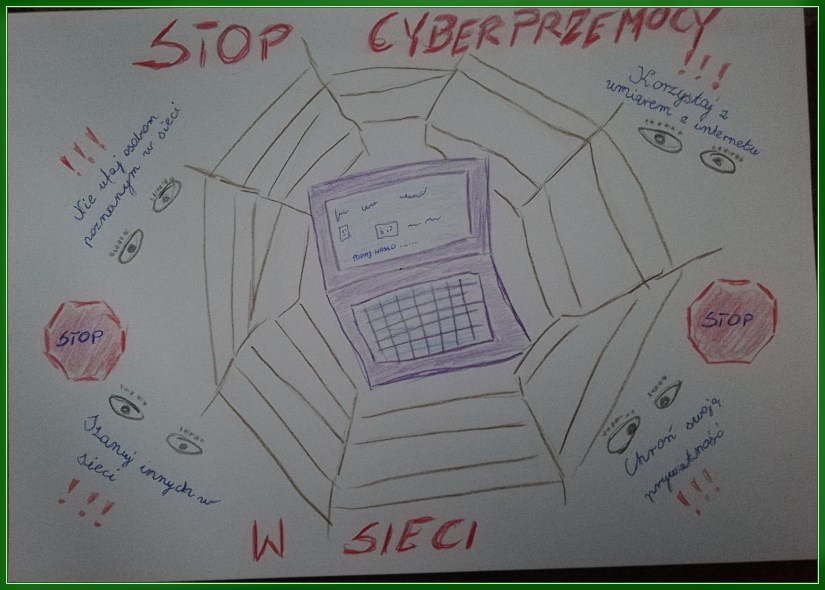 STOP CYBERPRZEMOCY
!!!
Korzystaj z
umiarem z internetu
!!!
Nie ufaj osobom
poznanym w sieci
PODAJ HASŁO ......
STOP
STOP
Szanuj innych w
sieci
!!!
Chroń swoją
prywatność
!!!
W SIECI